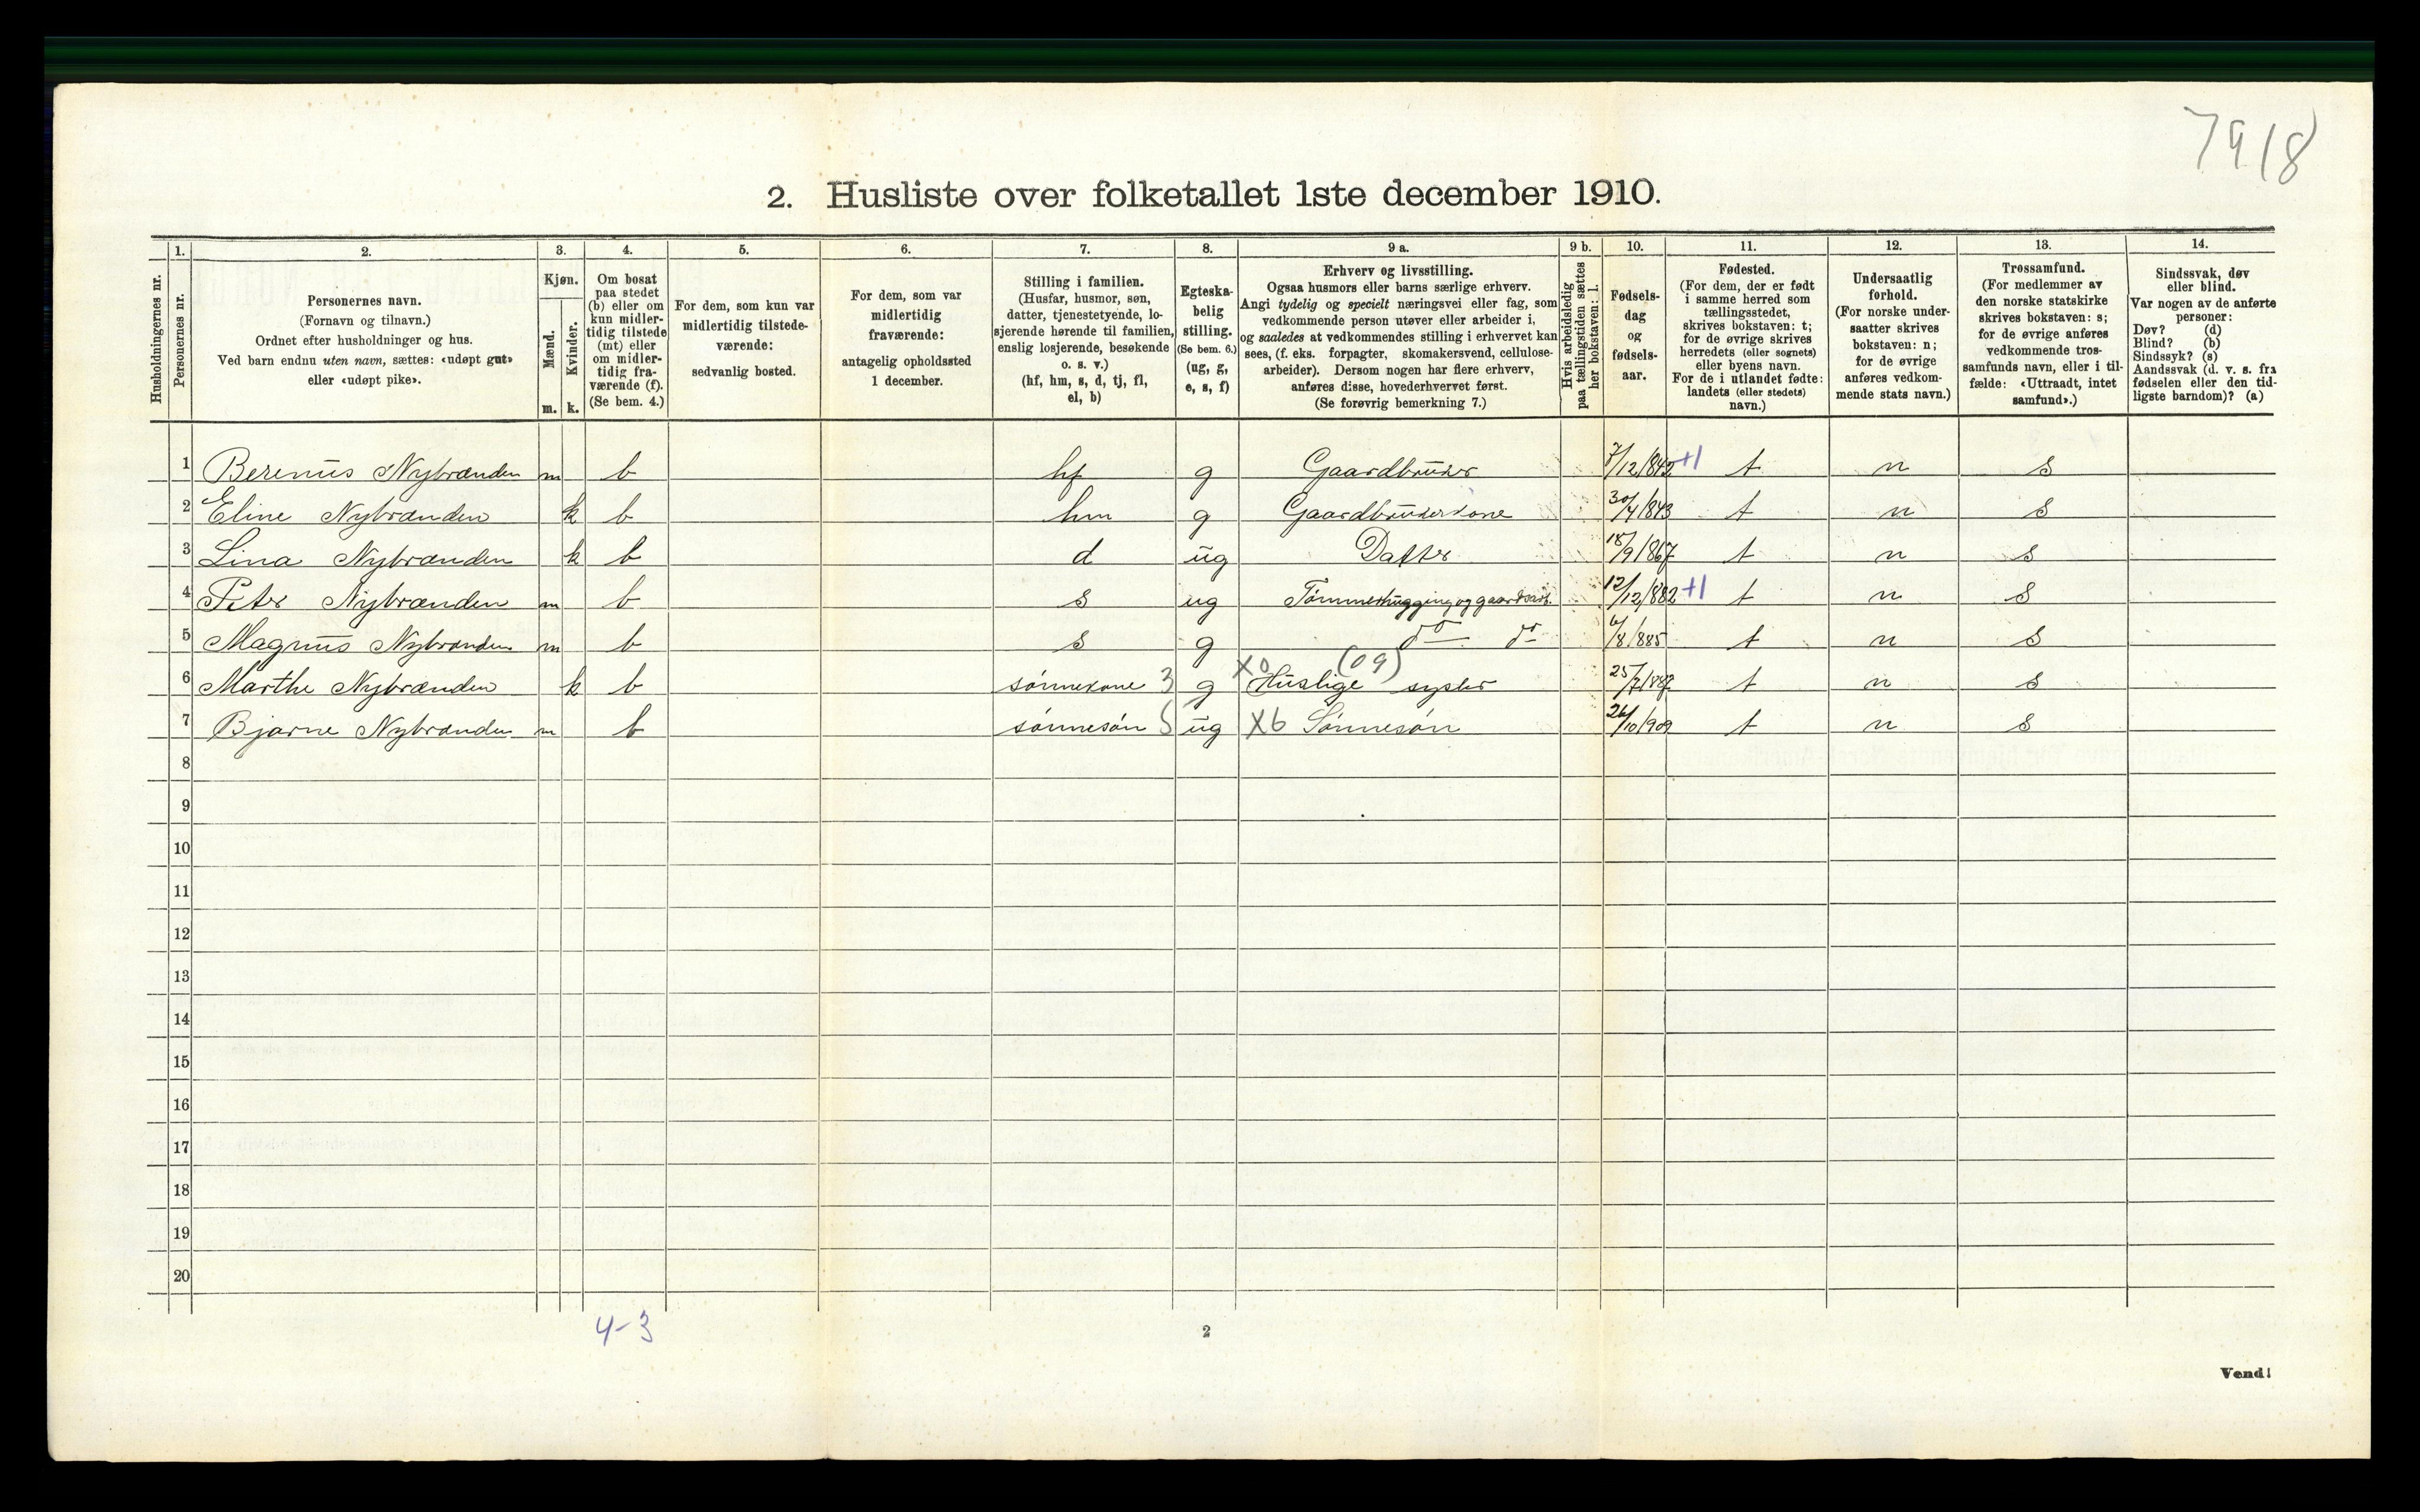 7918
2. Husliste over folketallet 1ste december 1910.
Husholdningernes nr.
1.
Personernes nr.
2.
Personernes navn.
(Fornavn og tilnavn.)
Ordnet efter husholdninger og hus.
Ved barn endnu uten navn, sættes: «udøpt gut»
eller «udøpt pike».
3.
Kjøn.
Mænd.
m.
Kvinder.
k.
4.
Om bosat
paa stedet
(b) eller om
kun midler-
tidig tilstede
(mt) eller
om midler-
tidig fra-
værende (f).
(Se bem. 4.)
5.
For dem, som kun var
midlertidig tilstede-
værende:
sedvanlig bosted.
6.
For dem, som var
midlertidig
fraværende:
antagelig opholdssted
1 december.
7.
Stilling i familien.
(Husfar, husmor, søn,
datter, tjenestetyende, lo-
sjerende hørende til familien,
enslig losjerende, besøkende
o. s. v.)
(hf, hm, s, d, tj, fl,
el, b)
8.
Egteska-
belig
stilling.
(Se bem. 6.)
(ug, g,
e, s, f)
9 a.
Erhverv og livsstilling.
Ogsaa husmors eller barns særlige erhverv.
Angi tydelig og specielt næringsvei eller fag, som
vedkommende person utøver eller arbeider i,
og saaledes at vedkommendes stilling i erhvervet kan
sees, (f. eks. forpagter, skomakersvend, cellulose-
arbeider). Dersom nogen har flere erhverv,
anføres disse, hovederhvervet først.
(Se forøvrig bemerkning 7.)
9 b.
Hvis arbeidsledig
paa tællingstiden sættes
her bokstaven: l.
10.
Fødsels-
dag
og
fødsels-
aar.
11.
Fødested.
(For dem, der er født
i samme herred som
tællingsstedet,
skrives bokstaven: t;
for de øvrige skrives
herredets (eller sognets)
eller byens navn.
For de i utlandet fødte:
landets (eller stedets)
navn.)
12.
Undersaatlig
forhold.
(For norske under-
saatter skrives
bokstaven: n;
for de øvrige
anføres vedkom-
mende stats navn.)
13.
Trossamfund.
(For medlemmer av
den norske statskirke
skrives bokstaven: s;
for de øvrige anføres
vedkommende tros-
samfunds navn, eller i til-
fælde: «Uttraadt, intet
samfund».)
14.
Sindssvak, døv
eller blind.
Var nogen av de anførte
personer:
Døv? (d)
Blind? (b)
Sindssyk? (s)
Aandssvak (d. v. s. fra
fødselen eller den tid-
ligste barndom)? (a)
1 Berenius Nybrænden m b hf g Gaardbruker 7/12/842 +1 t n s
2 Eline Nybrænden k b hm g Gaardbrukerkone 30/4/843 t n s
3 Lina Nybrænden k b d ug Datter 18/9/867 t n s
4 Peter Nybrænden m b s ug Tømmerhugging og gaardsarb. 12/12/882 +1 t n s
5 Magnus Nybrænden m b s g do do 6/8/885 t n s
6 Marthe Nybrænden k b sønnekone 3 g X0 Huslige (09) sysler 25/7/887 t n s
7 Bjarne Nybrænden m b sønnesøn 5 ug X6 Sønnesøn 26/10/909 t n s
8
9
10
11
12
13
14
15
16
17
18
19
20
4-3
2
Vend!